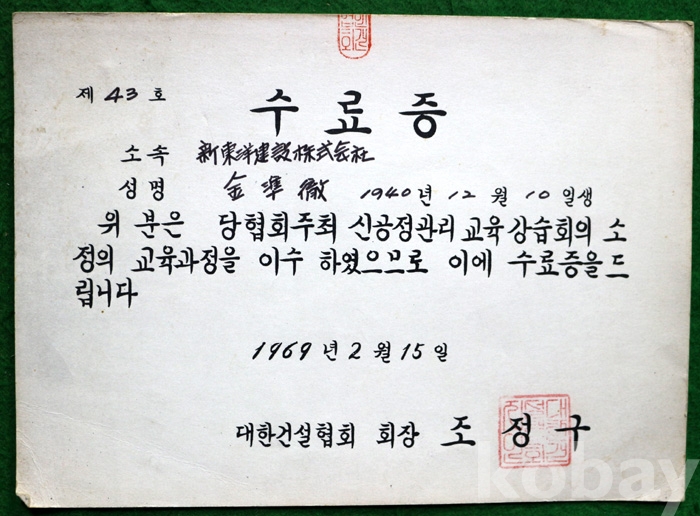 제 43 호
수 료 증
소 속 新東洋建設株式会社
성 명 金 準 徹 1940 년 12 월 10 일생
위 분은 당협회주최 신공정관리 교육 강습회의 소
정의 교육과정을 이수 하였으므로 이에 수료증을 드
립니다
1969 년 2 월 15 일
대한건설협회 회장 조 정 구
kobay